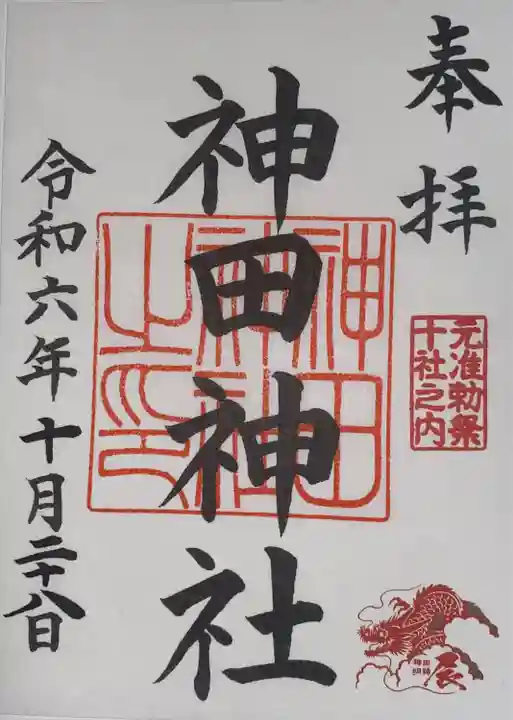 奉拝
元准勅祭
十社之内
辰
神田神社
神田
神社
之印
令和六年十月二十八日